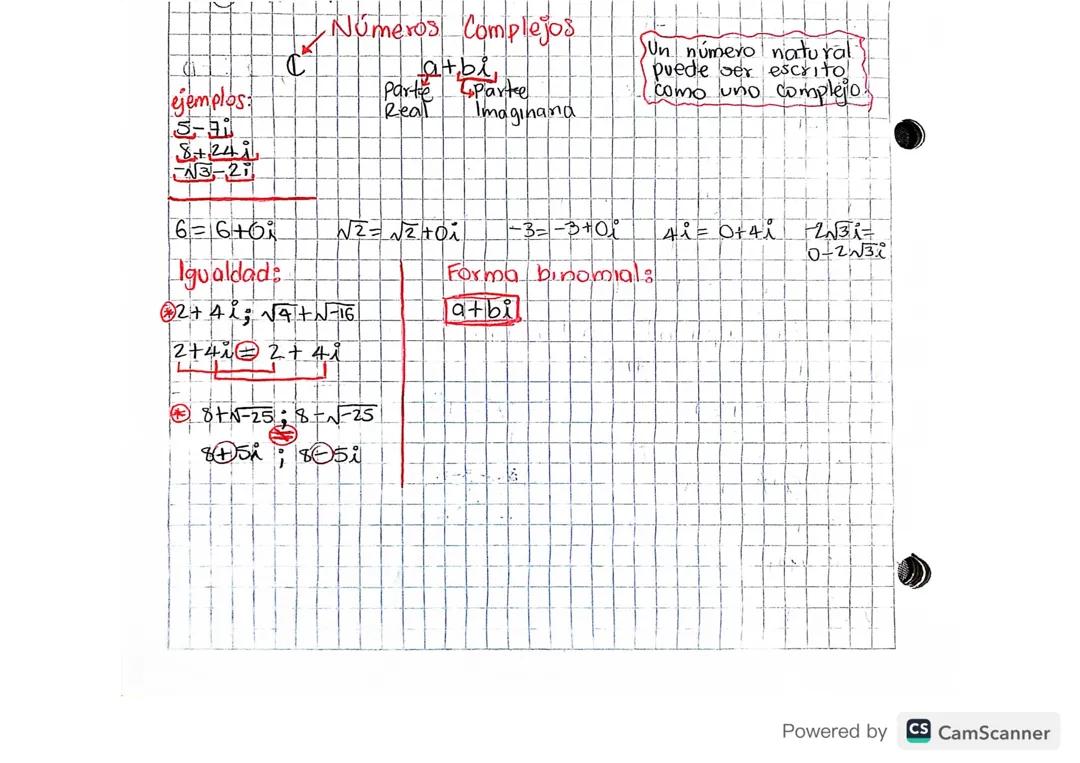 Números Complejos
ℂ
a+bi
Parte Real
Parte Imaginaria
Un número natural
puede ser escrito
como uno complejo.
ejemplos:
5-7i
8+24i
-√3-2i
6=6+0i
√2=√2+0i
-3=-3+0i
4i=0+4i
-2√3i=
0-2√3i
Igualdad:
*2+4i; √4+√-16
2+4i=2+4i
* 8+√-25 ; 8-√-25
≠
8+5i ; 8-5i
Forma binomial:
a+bi
Powered by CS CamScanner